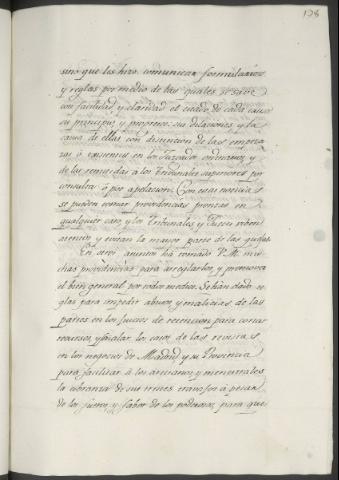 128
sino que les hizo comunicar formularios
y reglas por medio de las quales se sabe
con facilidad, y claridad el estado de cada causa
su principio, y progreso, sus dilaciones, y la
causa de ellas con distincion de las empeza
das ó existentes en los Juzgados ordinarios, y
de las remitidas à los tribunales superiores por
consulta ó por apelacion. Con cuya noticia
se pueden tomar providencias prontas en
qualquier caso, y los Tribunales y Jueces viven
atentos, y evitan la mayor parte de las quejas.
En otros asuntos ha tomado V. M. mu
chas providencias para arreglarlos, y promover
el bien general por todos medios. Se han dado re
glas para impedir abusos y malicias de las
partes en los juicios de retencion para cortar
recursos, y señalar los casos de las revistas
en los negocios de Madrid y su Provincia
para facilitar à los artesanos y menestrales
la cobranza de sus creditos à pesar
de los fueros, y favor de los poderosos, para que